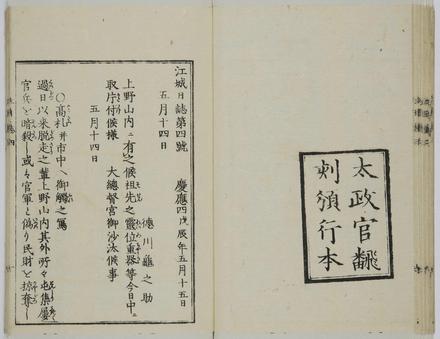 太政官飜
刻頒行本
江城日誌第四號　慶應四戊辰年五月十五日
五月十四日
徳川龜之助
上野山内ニ有之候祖先之靈位重器等今日中
取片付候様　大總督宮御沙汰候事
五月十四日
○高札并市中ヘ御觸之寫
過日以来脱走之輩上野山内其外所々屯集屡
官兵ヲ暗殺シ或ハ官軍ト偽リ民財ヲ掠奪シ